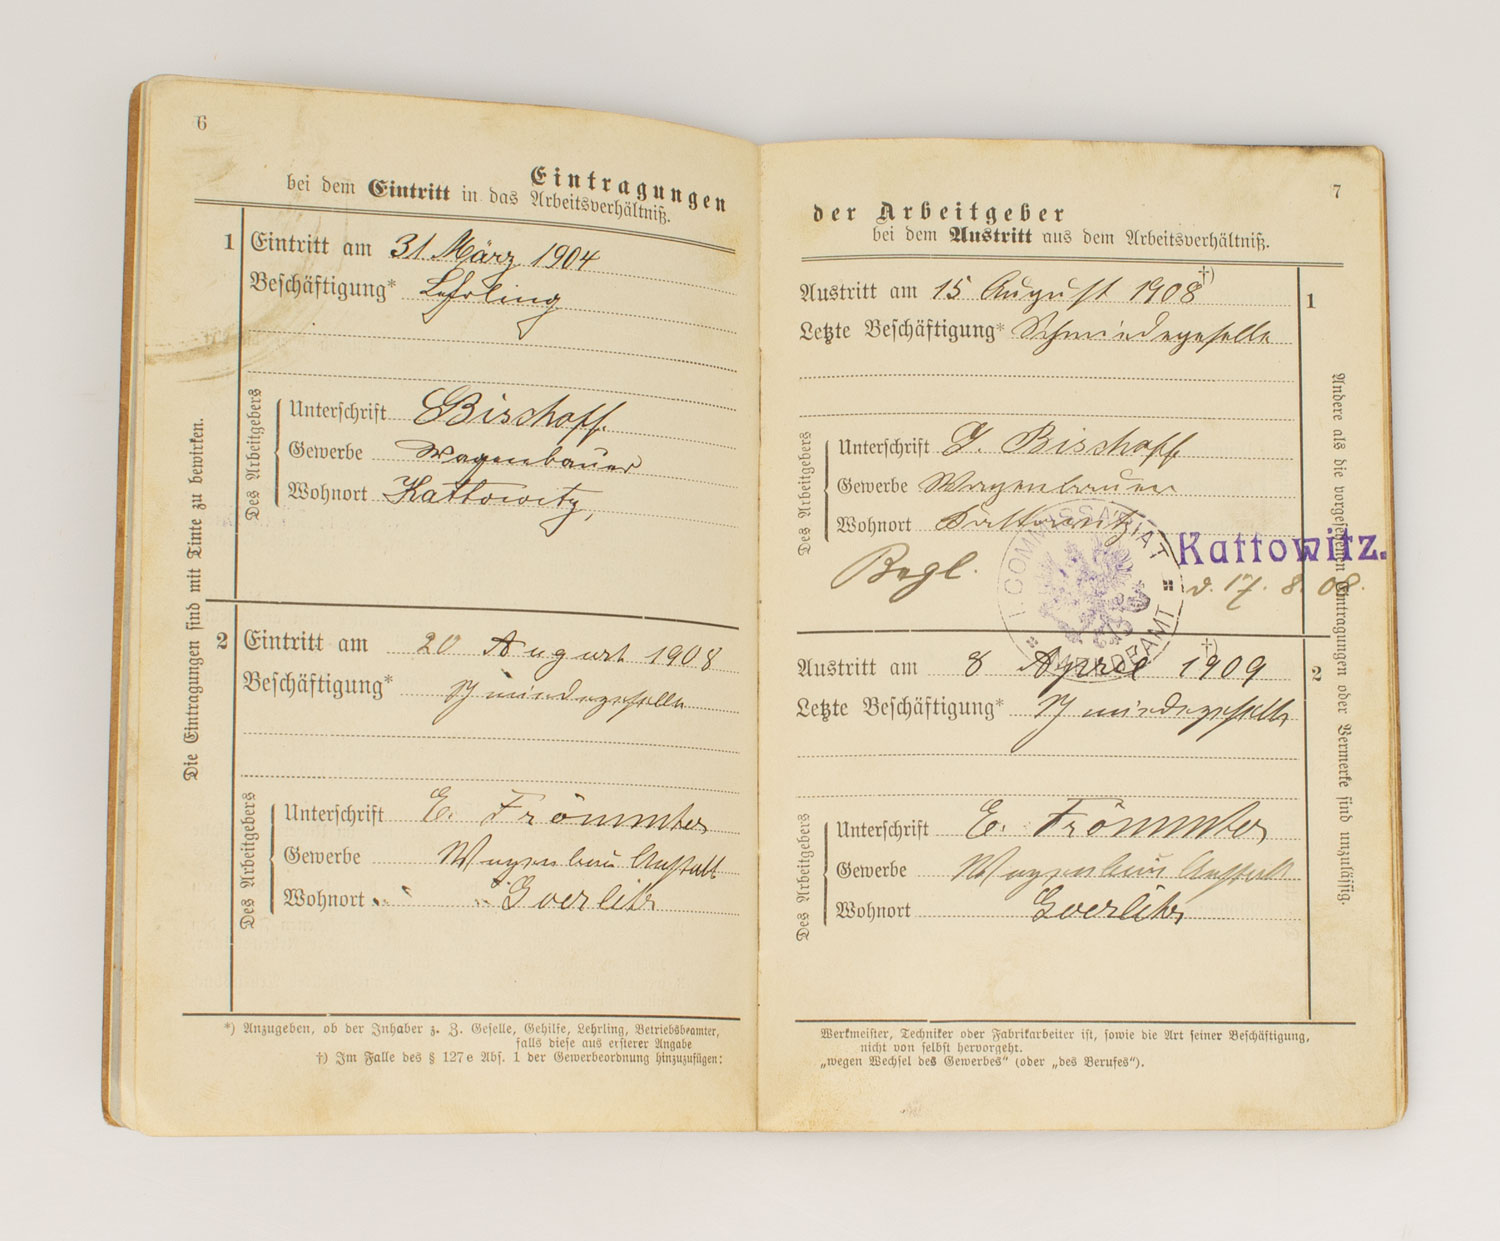 6
Eintragungen
bei dem Eintritt in das Arbeitsverhältniß.
1 Eintritt am 31 März 1904
Beschäftigung* Lehrling
Des Arbeitgebers
Unterschrift Bischoff.
Gewerbe Wagenbauer
Wohnort Kattowitz,
2 Eintritt am 20 August 1908
Beschäftigung* Schmiedegeselle
Des Arbeitgebers
Unterschrift E.
Gewerbe Wagenbau Anstalt
Wohnort Goerlitz
Die Eintragungen sind mit Tinte zu bewirken.
*) Anzugeben, ob der Inhaber z. Z. Geselle, Gehilfe, Lehrling, Betriebsbeamter,
falls diese aus ersterer Angabe
†) Im Falle des § 127e Abs. 1 der Gewerbeordnung hinzuzufügen:
7
der Arbeitgeber
bei dem Austritt aus dem Arbeitsverhältniß.
Austritt am 15 August 1908 †) 1
Letzte Beschäftigung* Schmiedegeselle
Des Arbeitgebers
Unterschrift J. Bischoff
Gewerbe Wagenbauer
Wohnort Kattowitz
Begl. Kattowitz.
d. 17. 8. 08.
I. COMMISSARIAT
Austritt am 8 April 1909 †) 2
Letzte Beschäftigung* Schmiedegeselle
Des Arbeitgebers
Unterschrift E.
Gewerbe Wagenbau Anstalt
Wohnort Goerlitz
Andere als die vorgesehenen Eintragungen oder Vermerke sind unzulässig.
Werkmeister, Techniker oder Fabrikarbeiter ist, sowie die Art seiner Beschäftigung,
nicht von selbst hervorgeht.
„wegen Wechsel des Gewerbes“ (oder „des Berufes“).